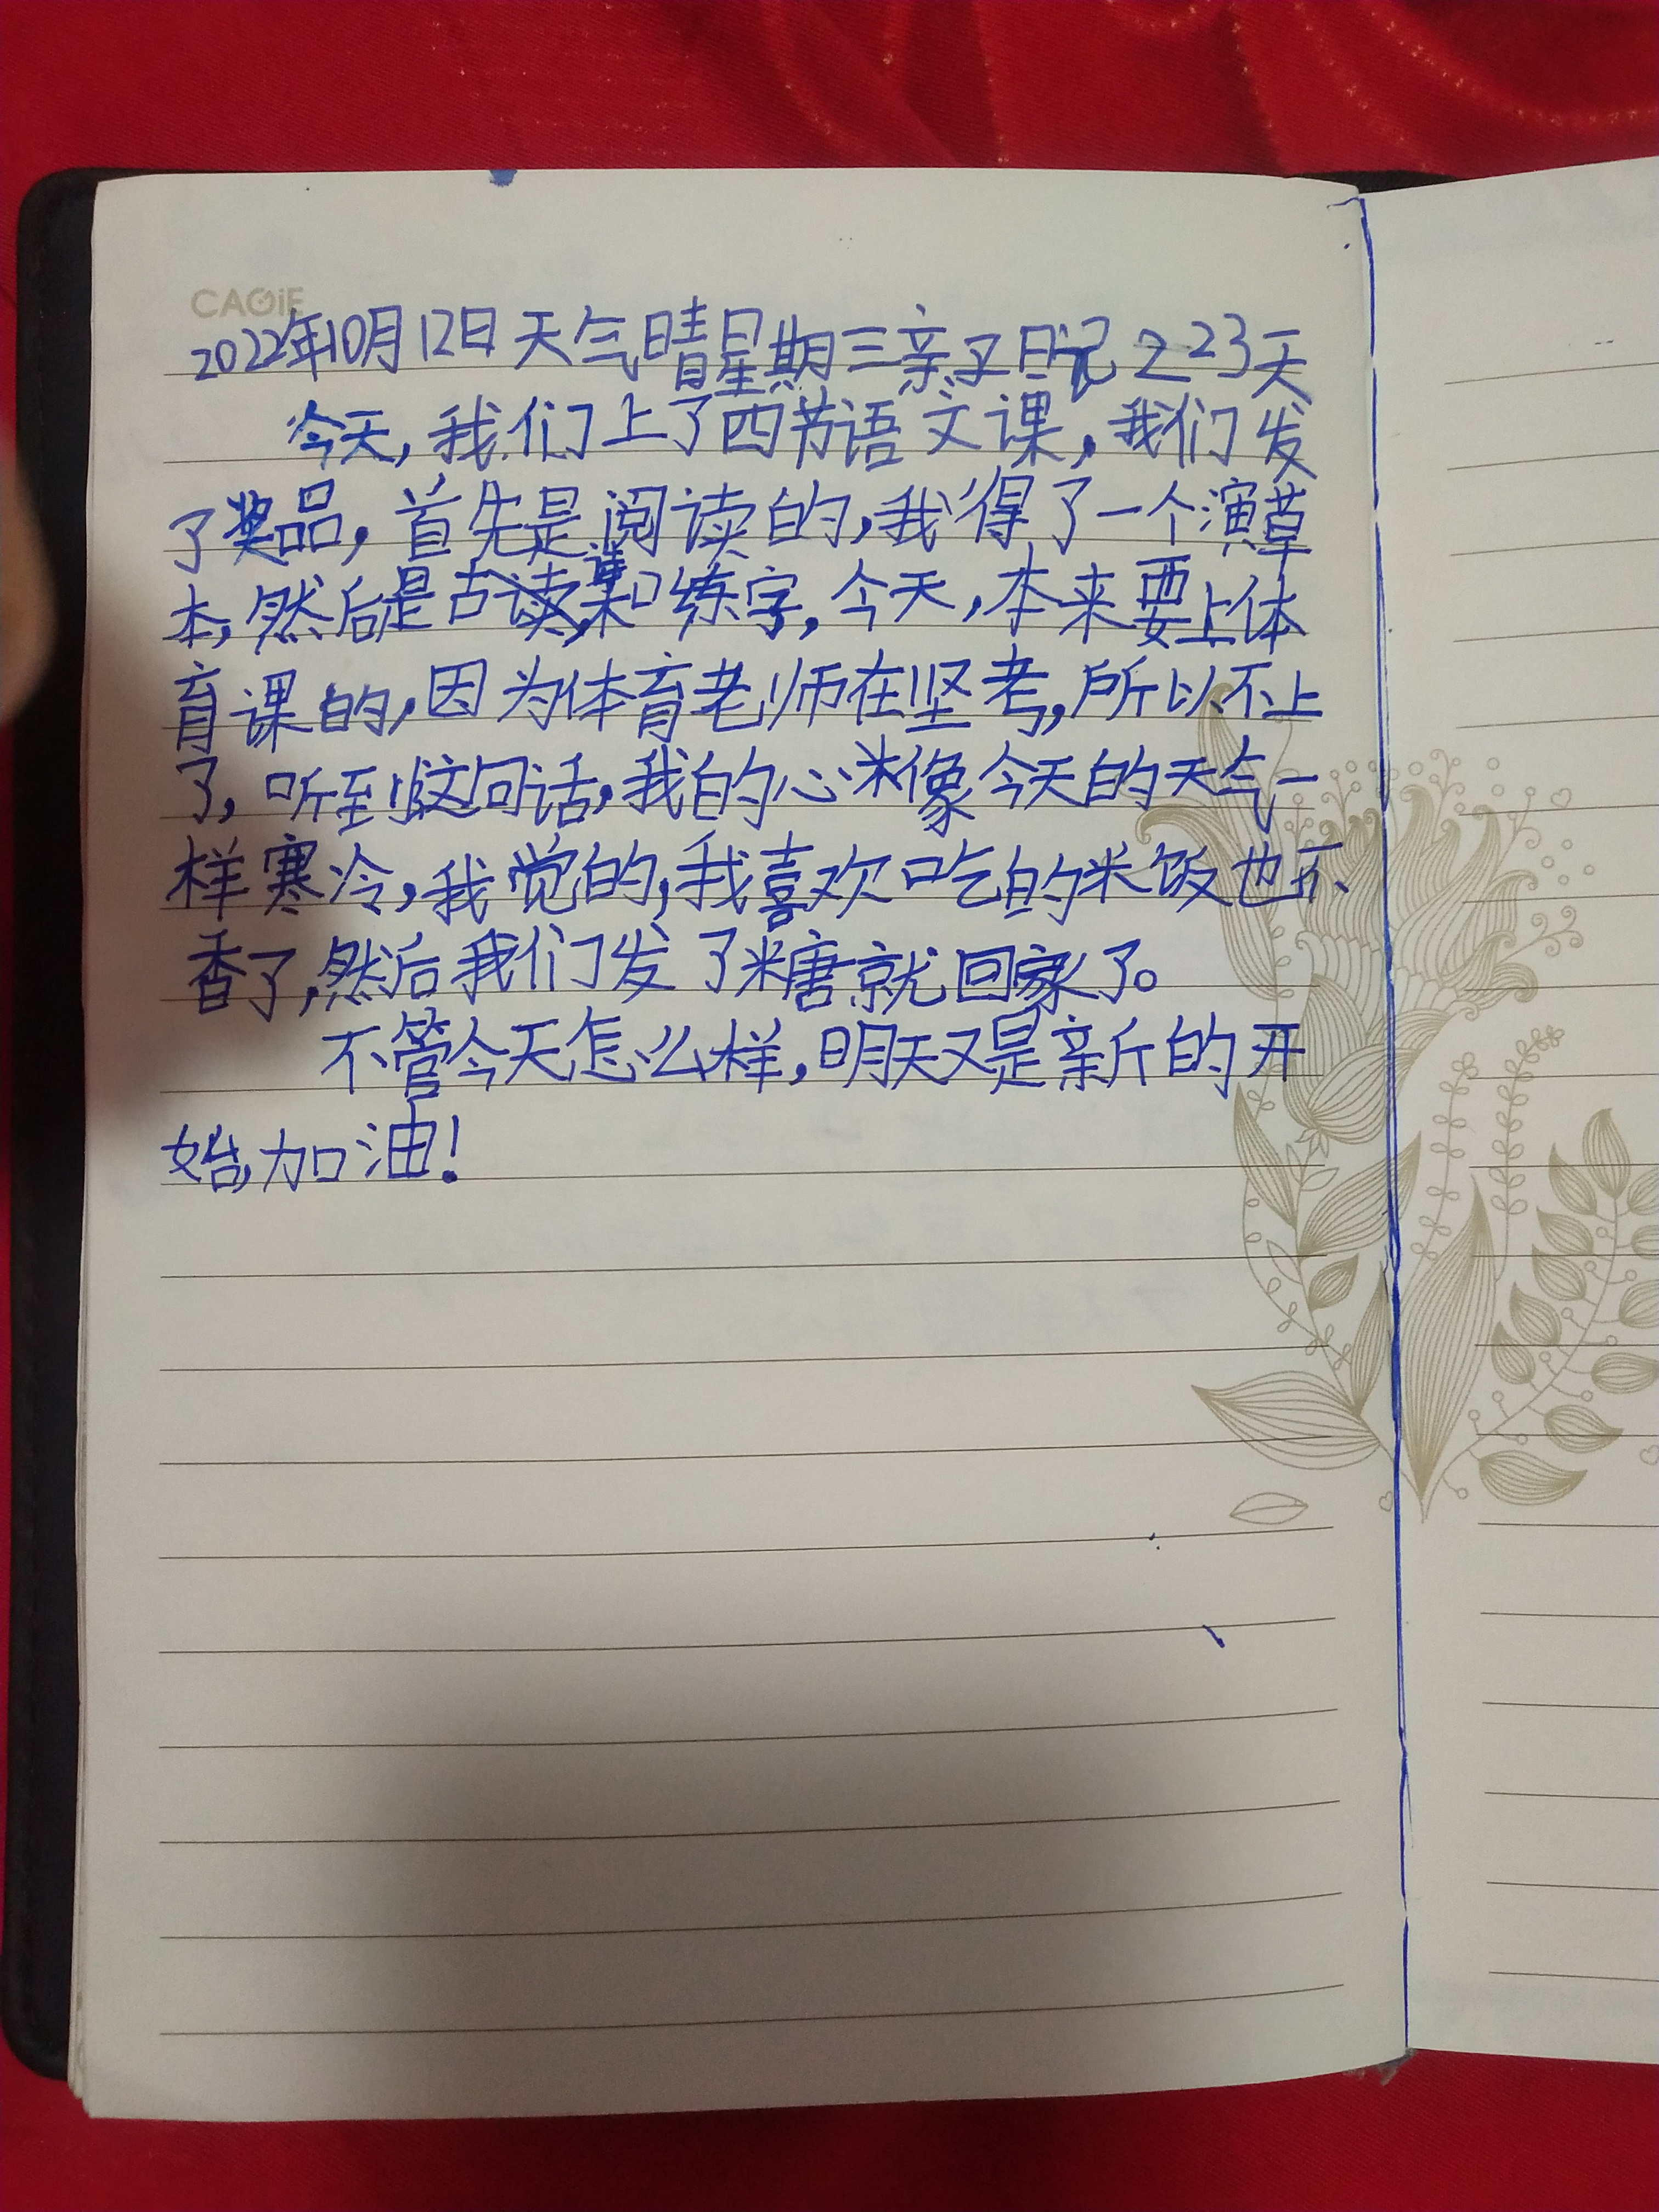 CAGiE
2022年10月12日天气晴星期三亲子日记之23天
今天,我们上了四节语文课,我们发
了奖品,首先是阅读的,我得了一个演草
本,然后是古读和练字,今天,本来要上体
育课的,因为体育老师在坚考,所以不上
了,听到这句话,我的心 像今天的天气一
样寒冷,我觉的,我喜欢吃的米饭也不
香了,然后我们发了糖就回家了。
不管今天怎么样,明天又是新的开
始,加油!